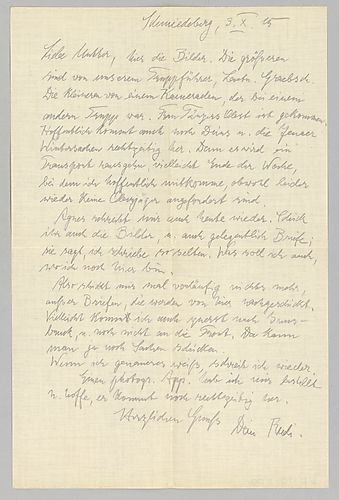 Schmiedeberg, 3. X. 15
Liebe Mutter, hier die Bilder. Die größeren
sind von unserem Truppführer, Leutn.
Die kleineren von einem Kameraden, der bei einem
andern Trupp war. Frau ist gekommen.
Hoffentlich kommt auch noch Deins u. die
Wintersachen rechtzeitig her. Denn es wird ein
Transport rausgehn, vielleicht Ende der Woche,
bei dem ich hoffentlich mitkomme, obwohl leider
wieder keine angefordert sind.
Agnes schreibt mir auch heute wieder. Schick
ihr auch die Bilder, u. auch gelegentlich Briefe;
sie sagt, ich schriebe so selten. Was soll ich auch,
wo ich noch hier bin.
Also schickt mir mal vorläufig nichts mehr,
außer Briefen, die werden von hier nachgeschickt.
Vielleicht kommt ich auch zuerst nach
u. noch nicht an die Front. Da kann
man ja noch Sachen schicken.
Wenn ich genaueres weiß, schreib ich wieder.
Einen photogr. App. hab ich mir bestellt
u. hoffe, er kommt noch rechtzeitig her.
Herzlichen Gruß
Dein Rudi.